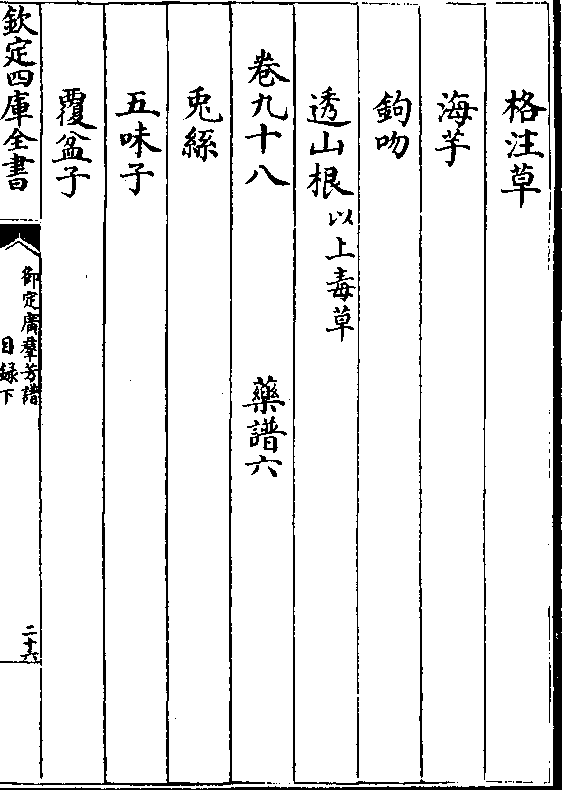 格注草
海芋
鉤吻
透山根以上毒草
卷九十八　藥譜六
兎絲
五味子
覆盆子
欽定四庫全書
御定廣羣芳譜
目録下
二十六